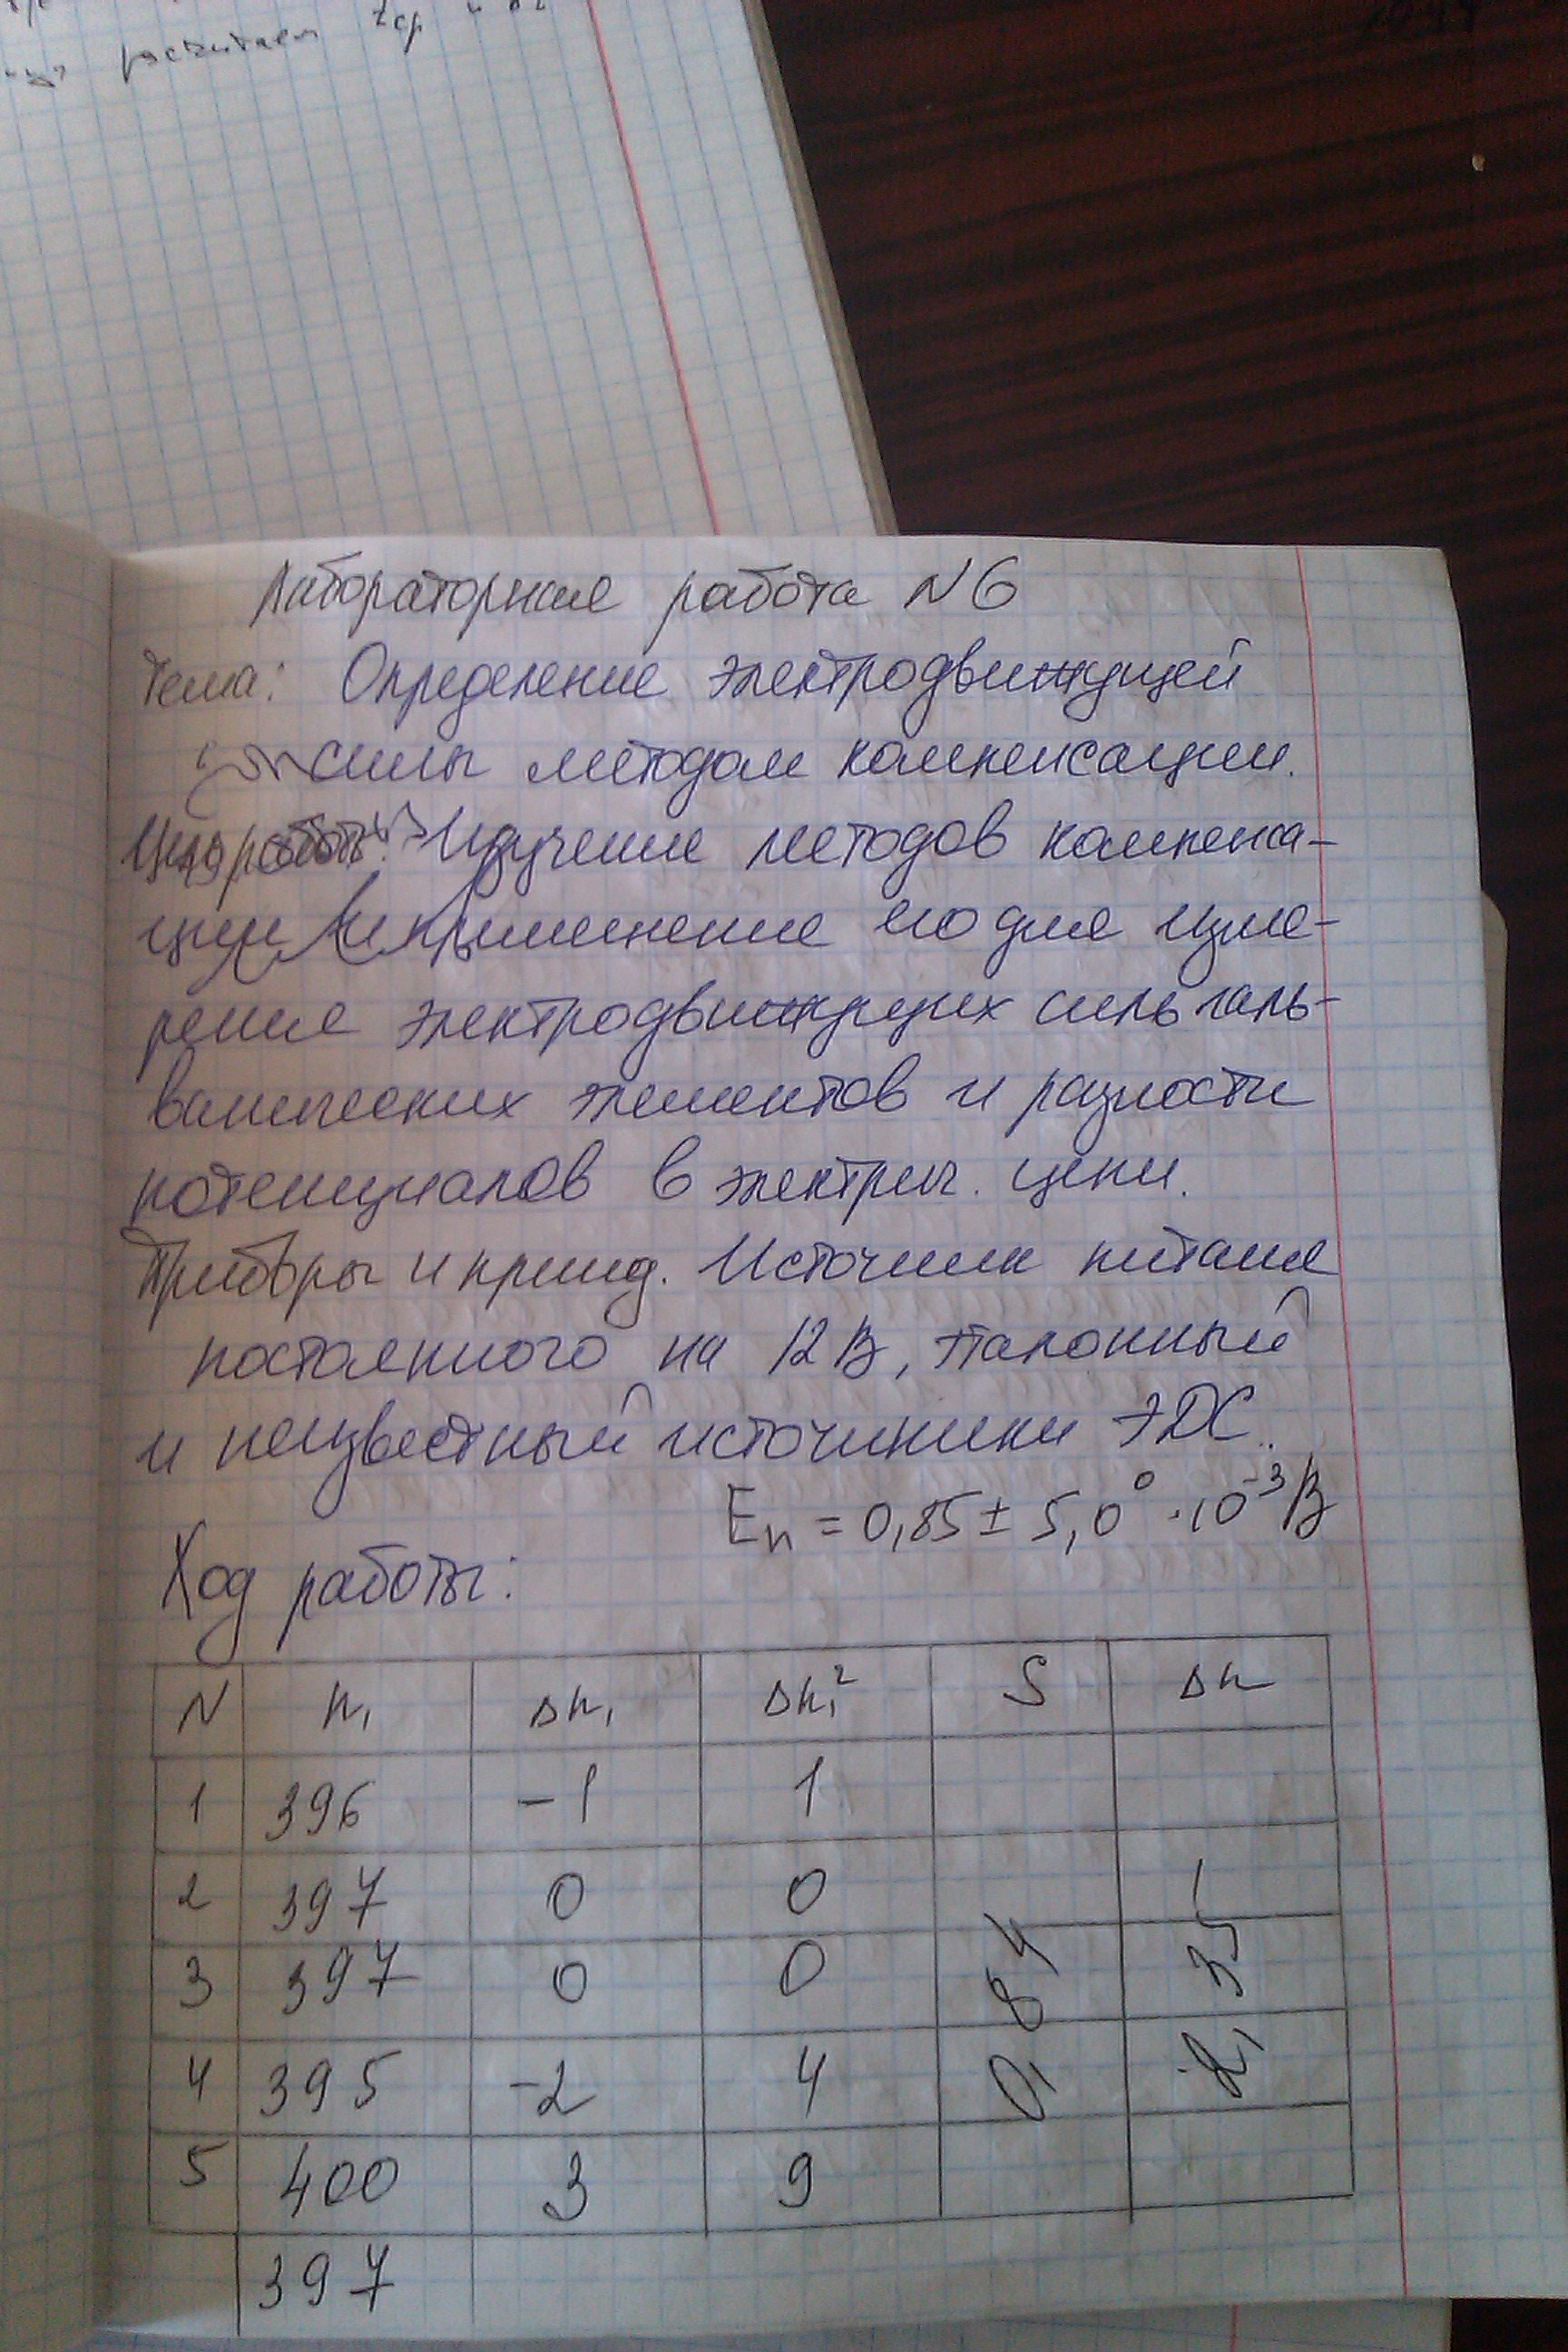 расчитаем tср и
Лабораторная работа N6
Тема: Определение электродвижущей
силы методом компенсации.
Цель работы: Изучение методов компенса-
ции и применение его для изме-
рения электродвижущих силь галь-
ванических элементов и разности
потенциалов в электрич. цепи.
Приборы и принад. Источник питания
постоянного на 12В, эталонный
и неизвестный источники ЭДС.
En = 0,85 ± 5,0⁰ · 10⁻³ В
Ход работы:
N n₁ Δn₁ Δn₁² S Δn
1 396 -1 1
2 397 0 0
3 397 0 0 0,84 2,351
4 395 -2 4
5 400 3 9
397